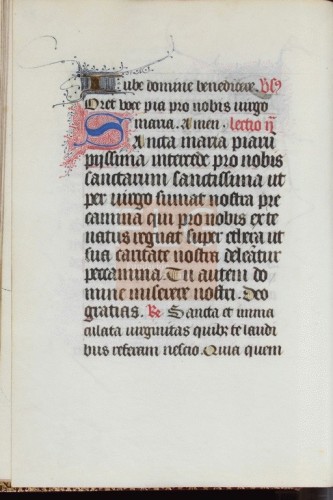 Iube domine benedicere. Bn̄
Oret voce pia pro nobis uirgo
maria. Amen. lectio ij
Sancta maria piaru͂
pijssima intercede pro nobis
sanctarum sanctissima ut
per uirgo sumat nostra pre
camina qui pro nobis ex te
natus regnat super ethera ut
sua caritate nostra deleātur
peccamina. Tu autem do
mine miserere nostri. Deo
gratias. Re Sancta et imma
culata uirginitas quibꝫ te laudi
bus referam nescio. Quia quem